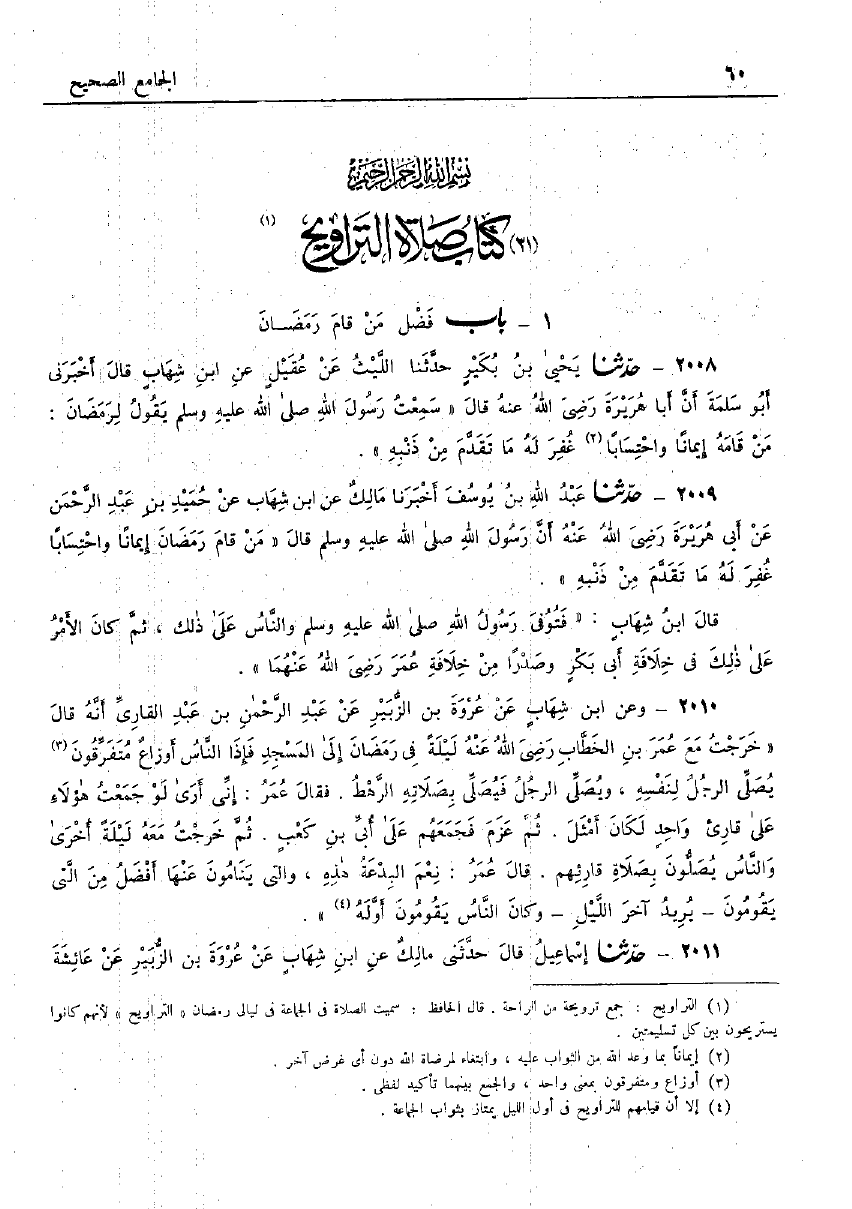 ٦٠ الجامع الصحيح
بسم الله الرحمن الرحيم
(٣١) كتاب صلاة التراويح (١)
١ - باب فَضْلِ مَنْ قامَ رَمَضَـانَ
٢٠٠٨ - حدّثنا يَحْيىٰ بنُ بُكَيْرٍ حدَّثَنا اللَّيْثُ عَنْ عُقَيْلٍ عنِ ابنِ شِهَابٍ قالَ أَخْبَرَنى
أَبُو سَلَمَةَ أَنَّ أَبا هُرَيْرَةَ رَضِىَ اللهُ عنهُ قالَ « سَمِعْتُ رَسُولَ اللهِ صلىٰ الله عليهِ وسلم يَقُولُ لِرَمَضَانَ :
مَنْ قَامَهُ إِيمَانًا واحْتِسَابًا (٢) غُفِرَ لَهُ مَا تَقَدَّمَ مِنْ ذَنْبِهِ » .
٢٠٠٩ - حدّثنا عَبْدُ اللهِ بنُ يُوسُفَ أَخْبَرَنا مَالِكٌ عن ابن شِهَاب عنْ حُمَيْدِ بنِ عَبْدِ الرَّحْمَن
عَنْ أَبى هُرَيْرَةَ رَضِىَ اللهُ عَنْهُ أَنَّ رَسُولَ اللهِ صلىٰ الله عليهِ وسلم قالَ « مَنْ قامَ رَمَضَانَ إِيمَانًا واحْتِسَابًا
غُفِرَ لَهُ مَا تَقَدَّمَ مِنْ ذَنْبِهِ » .
قالَ ابنُ شِهَابٍ : « فَتُوُفِّىَ رَسُولُ اللهِ صلىٰ الله عليهِ وسلم والنَّاسُ عَلَىٰ ذٰلك ، ثمَّ كانَ الأَمْرُ
عَلىٰ ذٰلِكَ فى خِلَافَةِ أَبى بَكْرٍ وصَدْرًا مِنْ خِلَافَةِ عُمَرَ رَضِىَ اللهُ عَنْهُمَا » .
٢٠١٠ - وعن ابن شِهَابٍ عَنْ عُرْوَةَ بن الزُّبَيْرِ عَنْ عَبْدِ الرَّحْمٰنِ بن عَبْدِ القارِىِّ أَنَّهُ قالَ
« خَرَجْتُ مَعَ عُمَرَ بنِ الخَطَّابِ رَضِىَ اللهُ عَنْهُ لَيْلَةً فى رَمَضَانَ إِلَىٰ المَسْجِدِ فَإِذَا النَّاسُ أَوزاعٌ مُتَفَرِّقُونَ (٣)
يُصَلِّى الرجلُ لِنَفْسِهِ ، ويُصَلِّى الرجلُ فَيُصَلِّى بِصَلَاتِهِ الرَّهْطُ . فقالَ عُمَرُ : إِنِّى أَرَىٰ لَوْ جَمَعْتُ هٰؤلَاءِ
عَلىٰ قارِئٍ وَاحِدٍ لَكَانَ أَمْثَلَ . ثُمَّ عَزَمَ فَجَمَعَهُم عَلَىٰ أُبَىِّ بنِ كَعْبٍ . ثُمَّ خَرجْتُ مَعَهُ لَيْلَةً أُخْرَىٰ
وَالنَّاسُ يُصَلُّونَ بِصَلَاةِ قارِئِهم . قالَ عُمَرُ : نِعْمَ البِدْعَةُ هٰذِهِ ، والتى يَنَامُونَ عَنْهَا أَفْضَلُ مِنَ الَّتى
يَقُومُونَ - يُرِيدُ آخرَ اللَّيْلِ - وكانَ النَّاسُ يَقُومُونَ أَوَّلَهُ (٤) » .
٢٠١١ - حدّثنا إِسْمَاعِيلُ قالَ حدَّثَنى مالِكٌ عنِ ابنِ شِهَابٍ عَنْ عُرْوَةَ بن الزُّبَيْرِ عَنْ عَائِشَةَ
(١) التراويح : جمع ترويحة من الراحة . قال الحافظ : سميت الصلاة فى الجماعة فى ليالى رمضان « التراويح » لأنهم كانوا
يستريحون بين كل تسليمتين .
(٢) إيماناً بما وعد الله من الثواب عليه ، وابتغاء لمرضاة الله دون أى غرض آخر .
(٣) أوزاع ومتفرقون بمعنى واحد ، والجمع بينهما تأكيد لفظى .
(٤) إلا أن قيامهم للتراويح فى أول الليل يمتاز بثواب الجماعة .